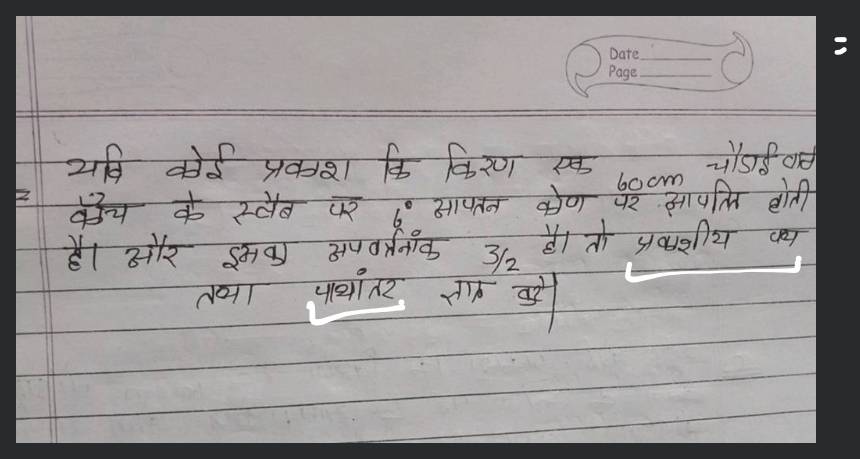 Date
Page
यदि कोई प्रकाश कि किरण एक 60cm चौडाई वाले
काँच के स्लैब पर 6° आपतन कोण पर आपतित होती
है। और इसका अपवर्तनांक 3/2 है। तो प्रकाशीय पथ
तथा पाथांतर ज्ञात करे|